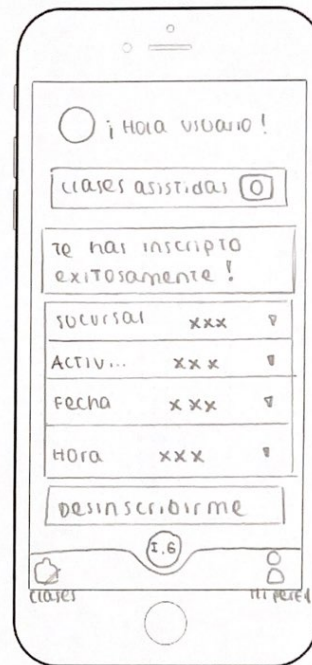 ¡Hola usuario!
Clases asistidas 0
Te has inscripto
exitosamente!
Sucursal xxx
Activ... xxx
Fecha xxx
Hora xxx
Desinscribirme
I.G
Clases Mi perfil